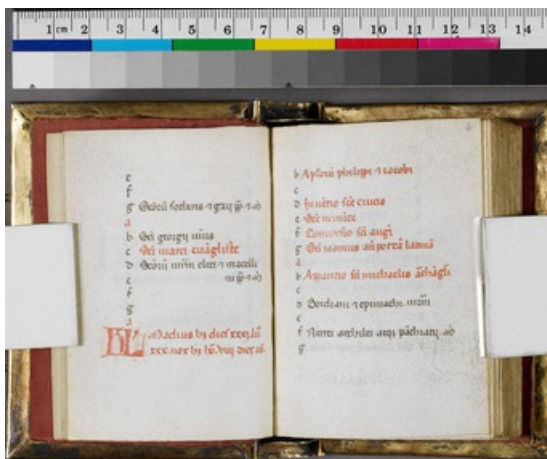 1 cm 2 3 4 5 6 7 8 9 10 11 12 13 14
e
f
g Scōrū sotheris ⁊ gaij
a
b Sci georgij
c Sci marci euāgliste
d Scōrū cleti ⁊ marcelli
e
f
g
a
KL Madius hȝ dies xxxj
xxx
b Aploru philippi ⁊ iacobi
c
d Inuētio sce crucis
e Sce monice
f Conuersio sci augī
g Sci ioannis añ portā latinā
a
b Apparitio sci michaelis
c
d Gordiani ⁊ epimachi
e
f Nerei archilei
g